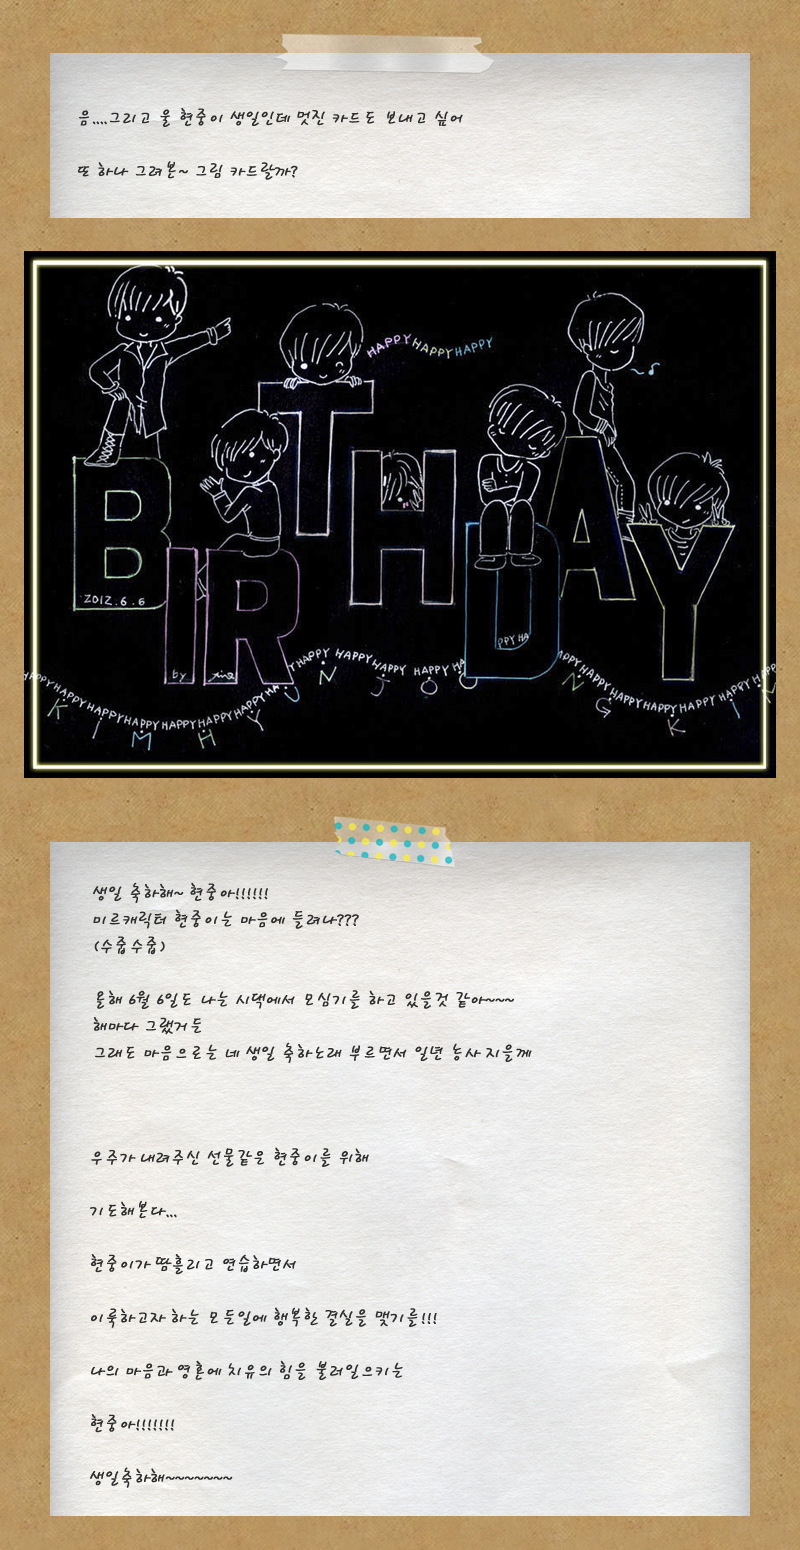 음....그리고 울 현중이 생일인데 멋진 카드도 보내고 싶어
또 하나 그려본~ 그림 카드랄까?
HAPPY HAPPY HAPPY
BIRTHDAY
2012.6.6
by
PPY HA
HAPPY HAPPY HAPPY HAPPY HAPPY HAPPY HAPPY HAPPY HAPPY HAPPY HAPPY HAPPY
KIM HYUN JOONG KIM
생일 축하해~ 현중아!!!!!!
미르캐릭터 현중이는 마음에 들려나???
(수줍수줍)
올해 6월 6일도 나는 시댁에서 모심기를 하고 있을것 같아~~~
해마다 그랬거든
그래도 마음으로는 네 생일 축하노래 부르면서 일년 농사 지을께
우주가 내려주신 선물같은 현중이를 위해
기도해본다...
현중이가 땀흘리고 연습하면서
이룩하고자 하는 모든일에 행복한 결실을 맺기를!!!
나의 마음과 영혼에 치유의 힘을 불러일으키는
현중아!!!!!!!
생일축하해~~~~~~~